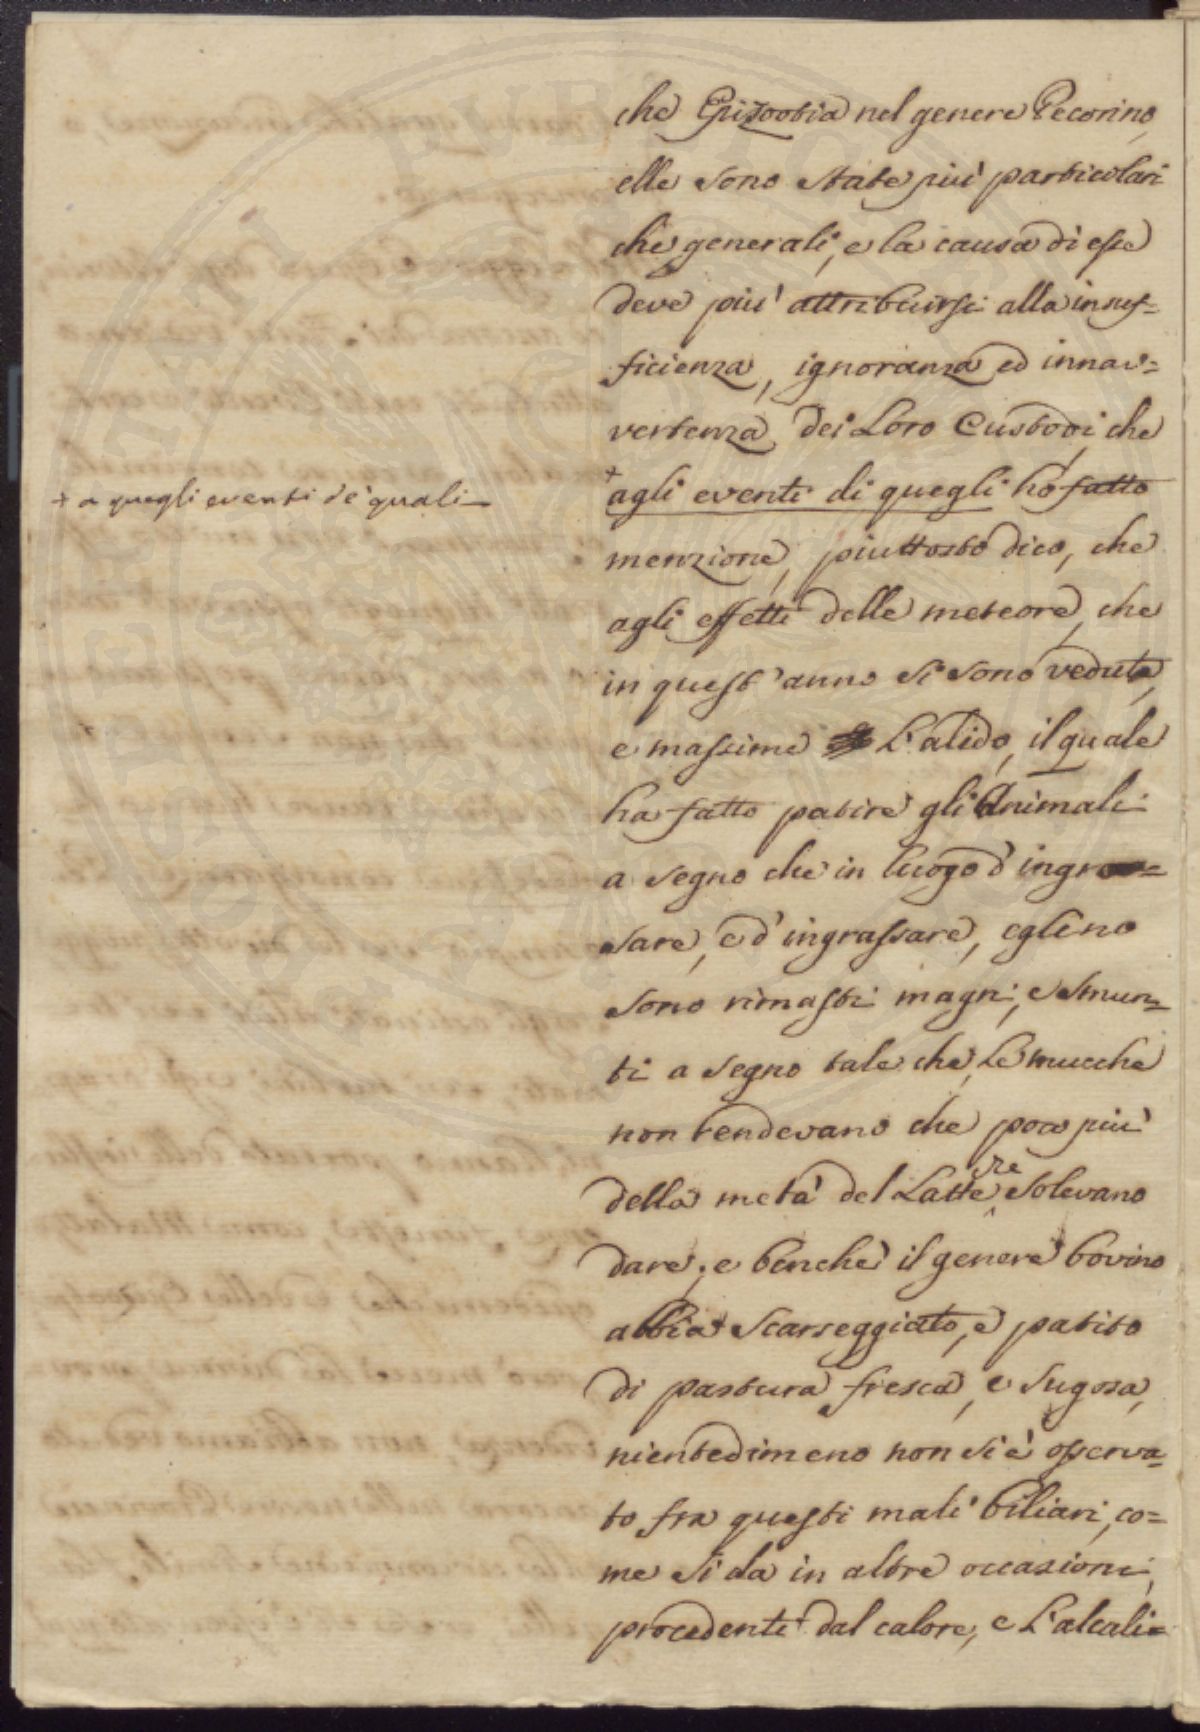 che Epizootia nel genere Pecorino,
elle sono state più particolari
che generali, e la causa di esse
deve più attribuirsi alla insuf=
ficienza, ignoranza ed innav=
vertenza dei Loro Custodi, che
+ a quegli eventi de' quali
+ agli eventi di quegli hò fatto
menzione, piuttosto dico, che
agli effetti delle meteore, che
in quest'anno si sono vedute,
e massime L'alido, il quale
ha fatto patire gli Animali
a segno che in luogo d'ingros=
sare, e d'ingrassare, eglino
sono rimasti magri, e smun=
ti a segno tale che, Le mucche
non rendevano che poco più
della metà del Latte che solevano
dare; e benchè il genere bovino
abbia scarseggiato, e patito
di pastura fresca, e sugosa,
nientedimeno non si è osserva=
to fra questi mali biliari, co=
me si da in altre occasioni,
procedenti dal calore, e L'alcali=